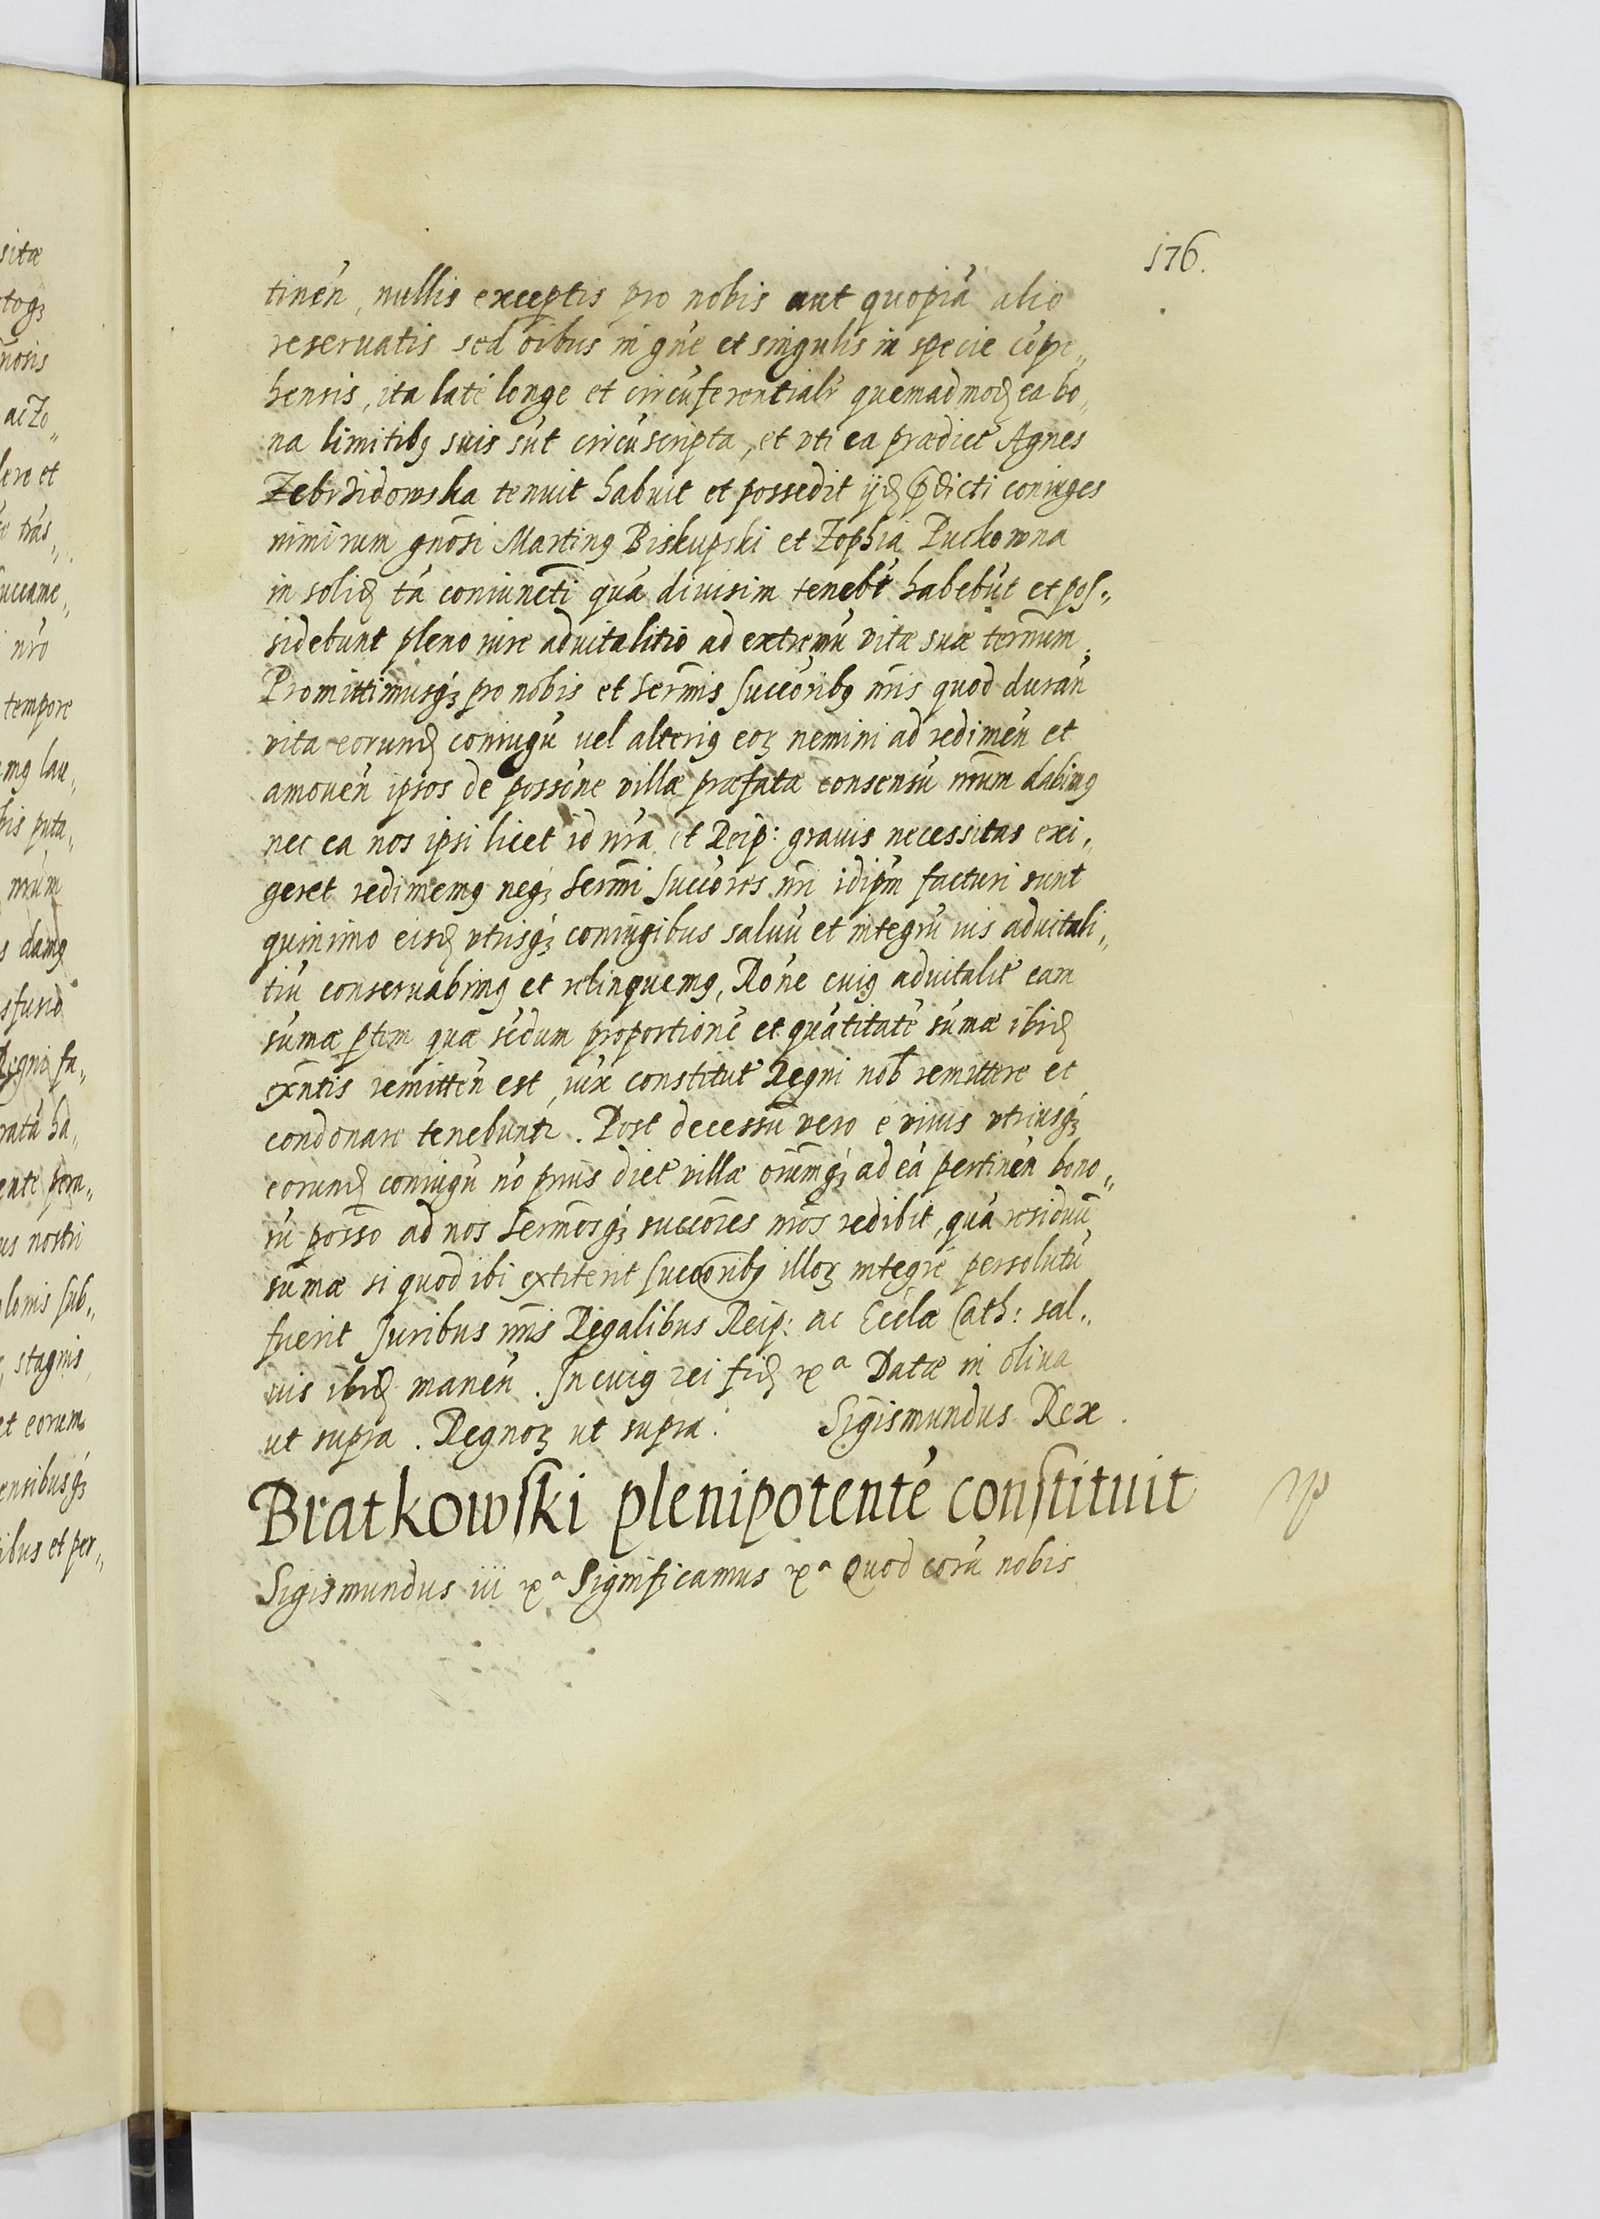 176.
tineń, nullis exceptis pro nobis aut quopiã alio
reseruatis sed oĩbus in gñe et singulis in specie cõpre„
hensis, ita latè longe et circũferentialr quemadmoḍ ea bo„
na limitibꝫ suis sũt circũscripta, et vti ea prædict Agnes
Zebrzidowska tenuit habuit et possedit ijḍ p̃dicti coniuges
nimirum gñosi Martinꝰ Biskupski et Zophia Puckowna
in soliḍ tã coniuncti quã diuisim tenebũt habebũt et pos„
sidebunt pleno iure aduitalitio ad extremũ vitæ suæ terminum.
Promittimusqꝫ pro nobis et serm̃is succoribꝫ nr̃is quod durañ
vita eorunḍ coniugũ vel alteriꝰ eoꝝ nemini ad redimeñ et
amoueñ ipsos de possõne villæ præfatæ consensũ nr̃um dabimꝰ
nec ea nos ipsi licet id nr̃a et Reip: grauis necessitas exi„
geret redimemꝰ neqꝫ serm̃i succores nr̃i idip̃m facturi sunt
quinimo eisḍ vtrisqꝫ coniugibus saluũ et integrũ ius aduitali„
tiũ conseruabimꝰ et relinquemꝰ, Rõne cuiꝰ aduitalit eam
sũmæ p̃tem quæ secdum proportionẽ et quãtitatẽ sũmæ ibiḍ
exñtis remitteñ est, iuxᵃ constitut Regni nob̃ remittere et
condonare tenebuntr. Post decessũ vero è viuis vtriusqꝫ
eorunḍ coniugũ nõ prius dict villæ oĩumqꝫ ad eã pertineñ bono„
rũ posso ad nos serm̃osqꝫ succores nr̃os redibit, quã residuũ
sũmæ si quod ibi extiterit succoribꝫ illoꝝ integrè persolutũ
fuerit Juribus nr̃is Regalibus Reip: ac Eccłæ Cath: sal„
uis ibiḍ maneñ. In cuiꝰ rei fiḍ rᵃ Datæ in oliua
ut supra. Regnoꝝ ut supra. Sigismundus Rex.
Bratkowski plenipotentẽ constituit
Sigismundus iii rᵃ Significamus rᵃ Quod corã nobis